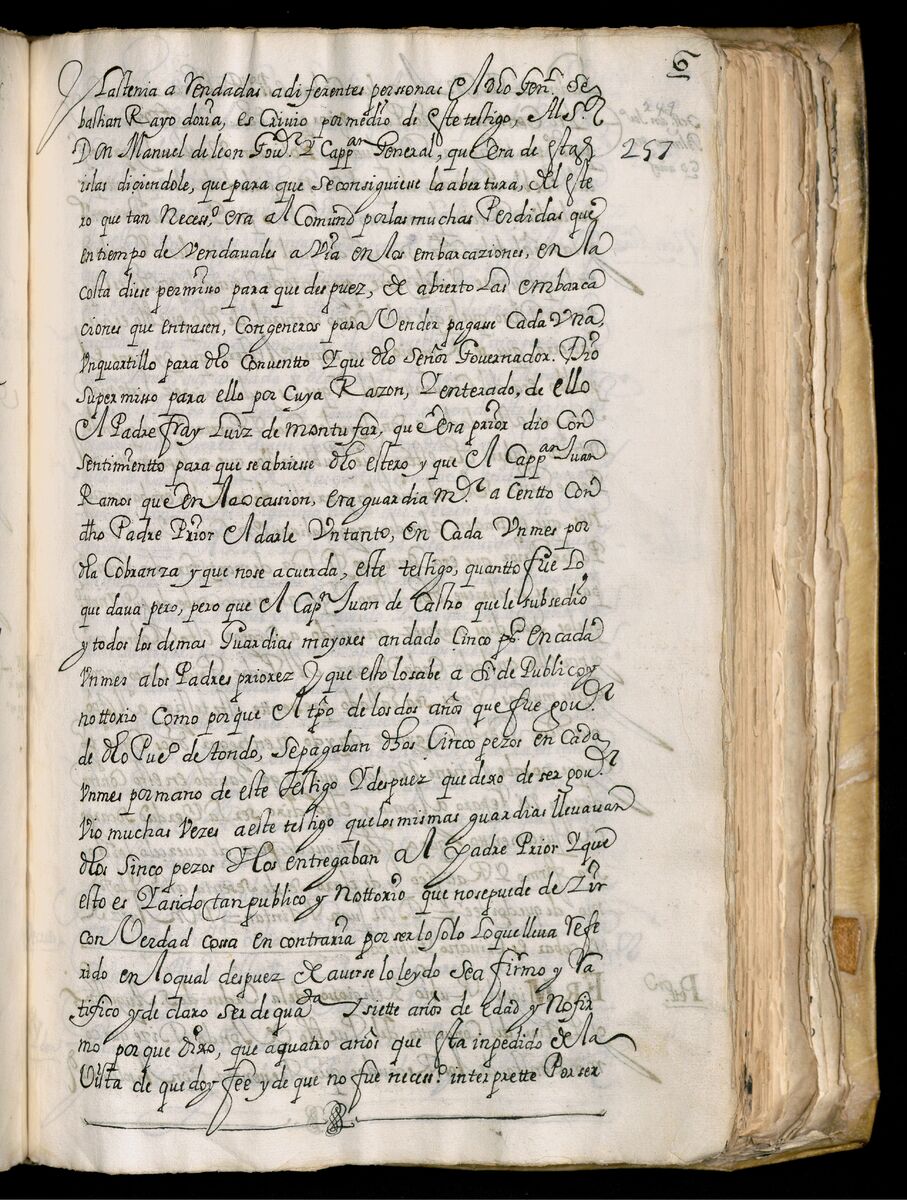 6
257
Y lastenia a Vendadas a diferentes perssonas El dho Gen.l Se
bastian Rayo doria, escrivio por medio de este testigo, Al S.r
Don Manuel de leon Gou.or Y Capp.an General, que Era de Estas
islas diçiendole, que para que se consiguiese la abertura, del este
ro que tan Necess.o era Al Comund por las muchas Perdidas que
en tiempo de Vendavales a Via en los embarcaziones, en la
costa diese permisso para que despuez, de abierto Las embarca
ciones que entrasen, Con generos para Vender pagase Cada Vna,
Vn quartillo para dho Conventto Y que dho Señor Governador. Dio
Su permisso para ello por Cuya Razon, Y enterado, de ello
El Padre fray Luiz de Montufar, que Era prior dio Con
sentimientto para que se abriese dho estero y que El Capp.an Juan
Ramos que En la occassion, era guardia m.or a Centto Con
dho Padre Prior El darle Vn tanto, en Cada Vn mes por
dha Cobranza y que no se acuerda, este testigo, quantto fue Lo
que dava pero, pero que El Cap.n Juan de Castro que le subsedio
y todos los demas Guardias mayores an dado Cinco p.s en cada
Vn mes a los Padres priorez Y que esto lo sabe a Si de Publico y
nottorio Como porque El tpo de los dos años que fue gou.or
de dho Pue.o de tondo, Se pagaban dhos Cinco pezos en Cada
Vn mes por mano de este testigo Y despuez que dexo de ser gou.or
Vio muchas Vezes a este testigo que los mismas guardias llevavan
dhos Sinco pezos Y los entregaban Al padre Prior Y que
esto es Y a sido tan publico y Nottorio que no se puede de Zir
con Verdad cossa en contraria por ser lo solo Lo que lleva Refe
rido en lo qual despuez de averse lo leydo Se a firmo y Ra
tifico y de claro Ser de qua.da Y siette años de Edad y No fir
mo porque dixo, que a quatro años que Esta inpedido de la
Vista de que doy fee y de que no fue necess.o interprette Por ser